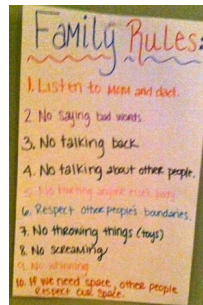 Family Rules:
1. Listen to Mom and dad.
2 No saying bad words
3. No talking back
4. No talking about other people.
5 No hurting anyone else's body
6. Respect other people's boundaries.
7. No throwing things (toys)
8. No screaming
9. No whining
10. If we need space, other people
respect our space.